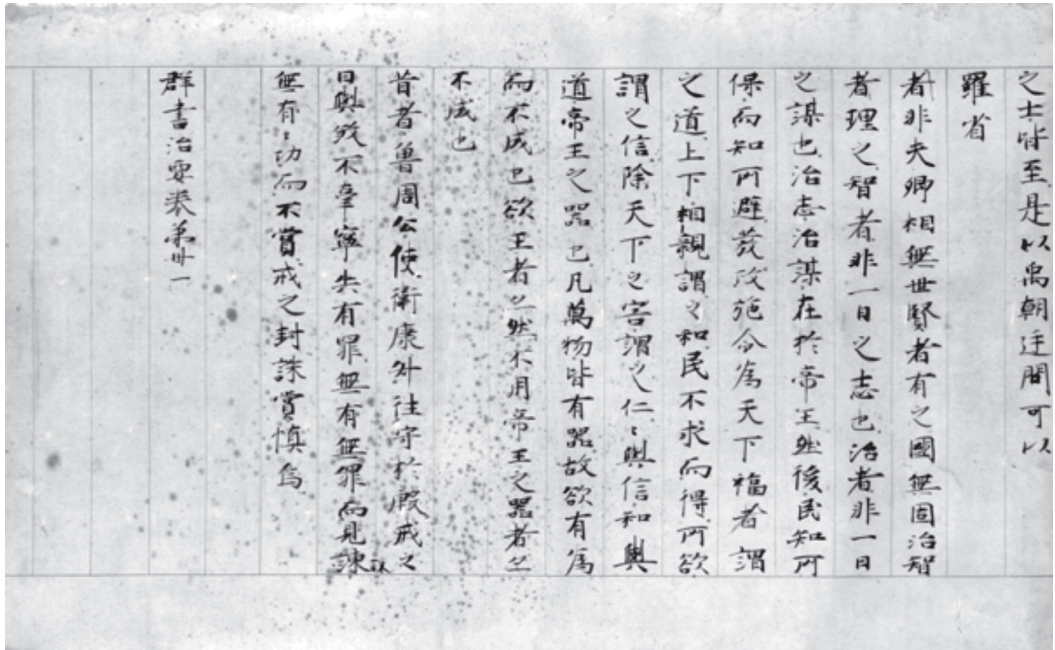 之士皆至是以禹朝廷間可以
羅省
者非夫卿相無世賢者有之國無固治智
者理之智者非一日之志也治者非一日
之謀也治志治謀在於帝王然後民知所
保而知所避發政施令為天下福者謂
之道上下相親謂之和民不求而得所欲
謂之信除天下之害謂之仁〻與信和與
道帝王之器也凡萬物皆有器故欲有為
而不成也欲王者亦然不用帝王之器者亦
不成也
昔者魯周公使衛康叔往守於殷戒之
曰與殺不辜寧失有罪無有無罪而見誅
無有〻功而不賞戒之封誅賞慎焉
群書治要卷第卅一